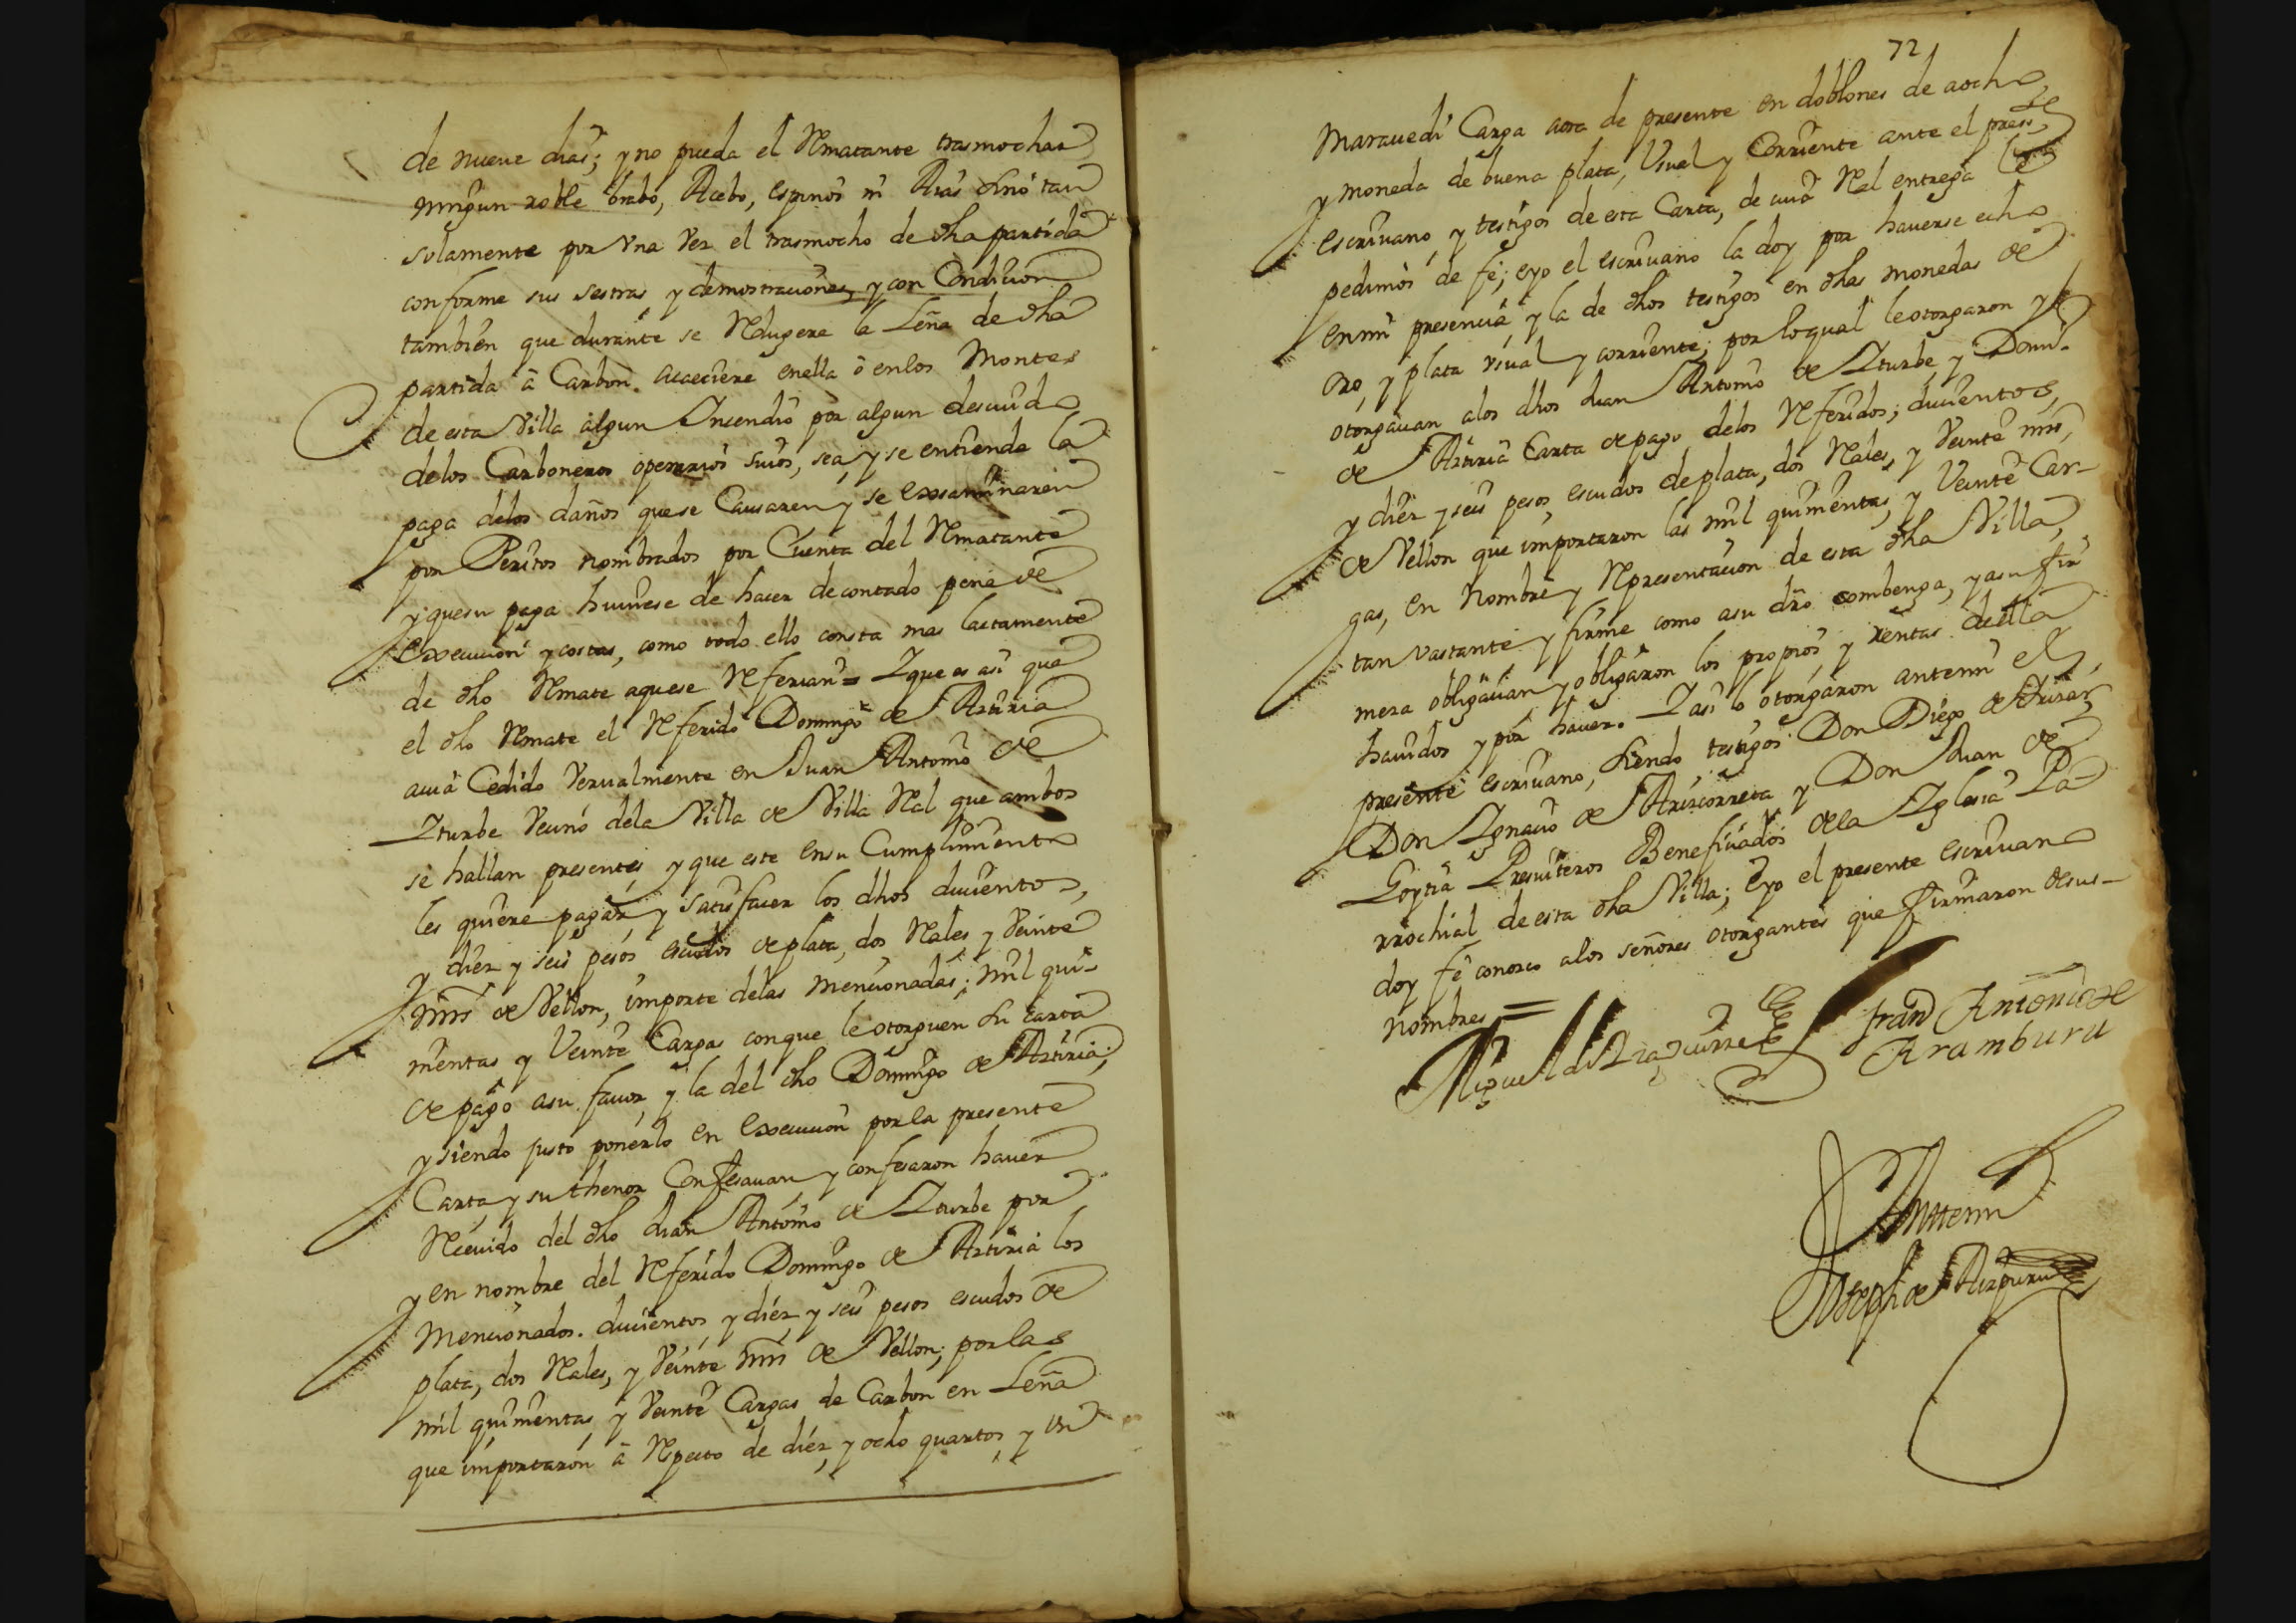 de nueve dias; y no pueda el Rmatante trasmochar
ningun roble brabo, Acebo, espinos ni Aias sino tan
solamente por Vna Vez el trasmocho de dha partida
conforme sus sestras y demostraciones, y con Condicion
tambien que durante se Redugere la Leña de dha
partida â Carbon acaeciere enella ô enlos Montes
de esta Villa algun Incendio por algun descuido
delos Carboneros operarios suios, sea y se entienda la
paga delos daños quese Causaren y se exsaminaren
por Peritos nombrados por Cuenta del Rmatante
y quesu paga huviese de hacer decontado pena de
execucion y costas, como todo ello consta mas lactamente
de dho Rmate aquese Referian = Y que es asi que
el dho Rmate el Referido Domingo de Arturia
avia Cedido Vervalmente en Juan Antonio de
Yturbe Vecino dela Villa de Villa Real que ambos
se hallan presentes y que este ensu Cumplimiento
les quiere pagar, y satisfacer los dhos ducientos,
y diez y seis pesos escudos de plata, dos Reales y Veinte
mrs de Vellon, importe delas mencionadas; mil qui-
nientas y Veinte Cargas conque le otorguen su carta
de pago asu favor, y la del dho Domingo de Arturia;
y siendo justo ponerlo en execucion por la presente
Carta y su thenor Confesavan y confesaron haver
Recivido del dho Juan Antonio de Yturbe por
y en nombre del Referido Domingo de Arturia los
mencionados ducientos y diez y seis pesos escudos de
plata, dos Reales, y Veinte mrs de Vellon; por las
mil quinientas, y Veinte Cargas de Carbon en Leña
que importaron â Respecto de diez, y ocho quartos, y Vn
72
Maravedi Carga aora de presente en doblones de aocho,
y moneda de buena plata, Vsual y Corriente ante el presste
escrivano, y testigos de esta Carta, de cuia Real entrega
pedimos de fe; eyo el escrivano la doy por haverse echo
enmi presencia y la de dhos testigos en dhas monedas de
oro, y plata vsual y corriente; por loqual le otorgaron y
otorgavan alos dhos Juan Antonio de Yturbe, y Domi-
de Arturia Carta de pago delos Referidos; ducientos,
y diez y seis pesos, escudos de plata, dos Reales, y Veinte mrs,
de Vellon que importaron las mil quinientas, y Veinte Car-
gas, en Nombre y Representacion de esta dha Villa,
tan vastante y firme como asu dro combenga, y asu fir
meza obligavan y obligaron los propios y rentas della
havidos y por haver. Y asi lo otorgaron antemi el
presente escrivano, siendo testigos Don Diego de
Don Ygnacio de Arizcorreta y Don Juan de
Goytia Presviteros Beneficiados dela Yglesia Pa
rrochial de esta dha Villa; Eyo el presente escrivano
doy fê conozco alos señores otorgantes que firmaron desus-
nombres =
Miguel de
fran Antonio de
Aramburu
Antemi
Joseph de Aizpuru